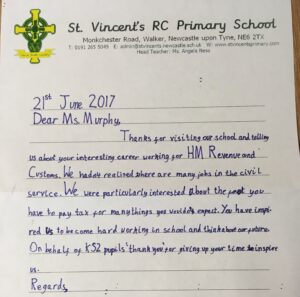 St. Vincent's RC Primary School
Monkchester Road, Walker, Newcastle upon Tyne, NE6 2TX
T: 0191 265 5049 E: admin@stvincents.newcastle.sch.uk W: www.stvincentsprimary.com
Head Teacher: Ms. Angela Ness
21st June 2017
Dear Ms. Murphy,
Thanks for visiting our school and telling
us about your interesting career working for HM Revenue and
Customs. We hadn't realized there are many jobs in the civil
service. We were particularly interested about the you
have to pay tax for many things you wouldn't expect. You have inspi-
red us to become hard working in school and think about our future.
On behalf of KS2 pupils 'thank you' for giving up your time to inspire
us.
Regards,